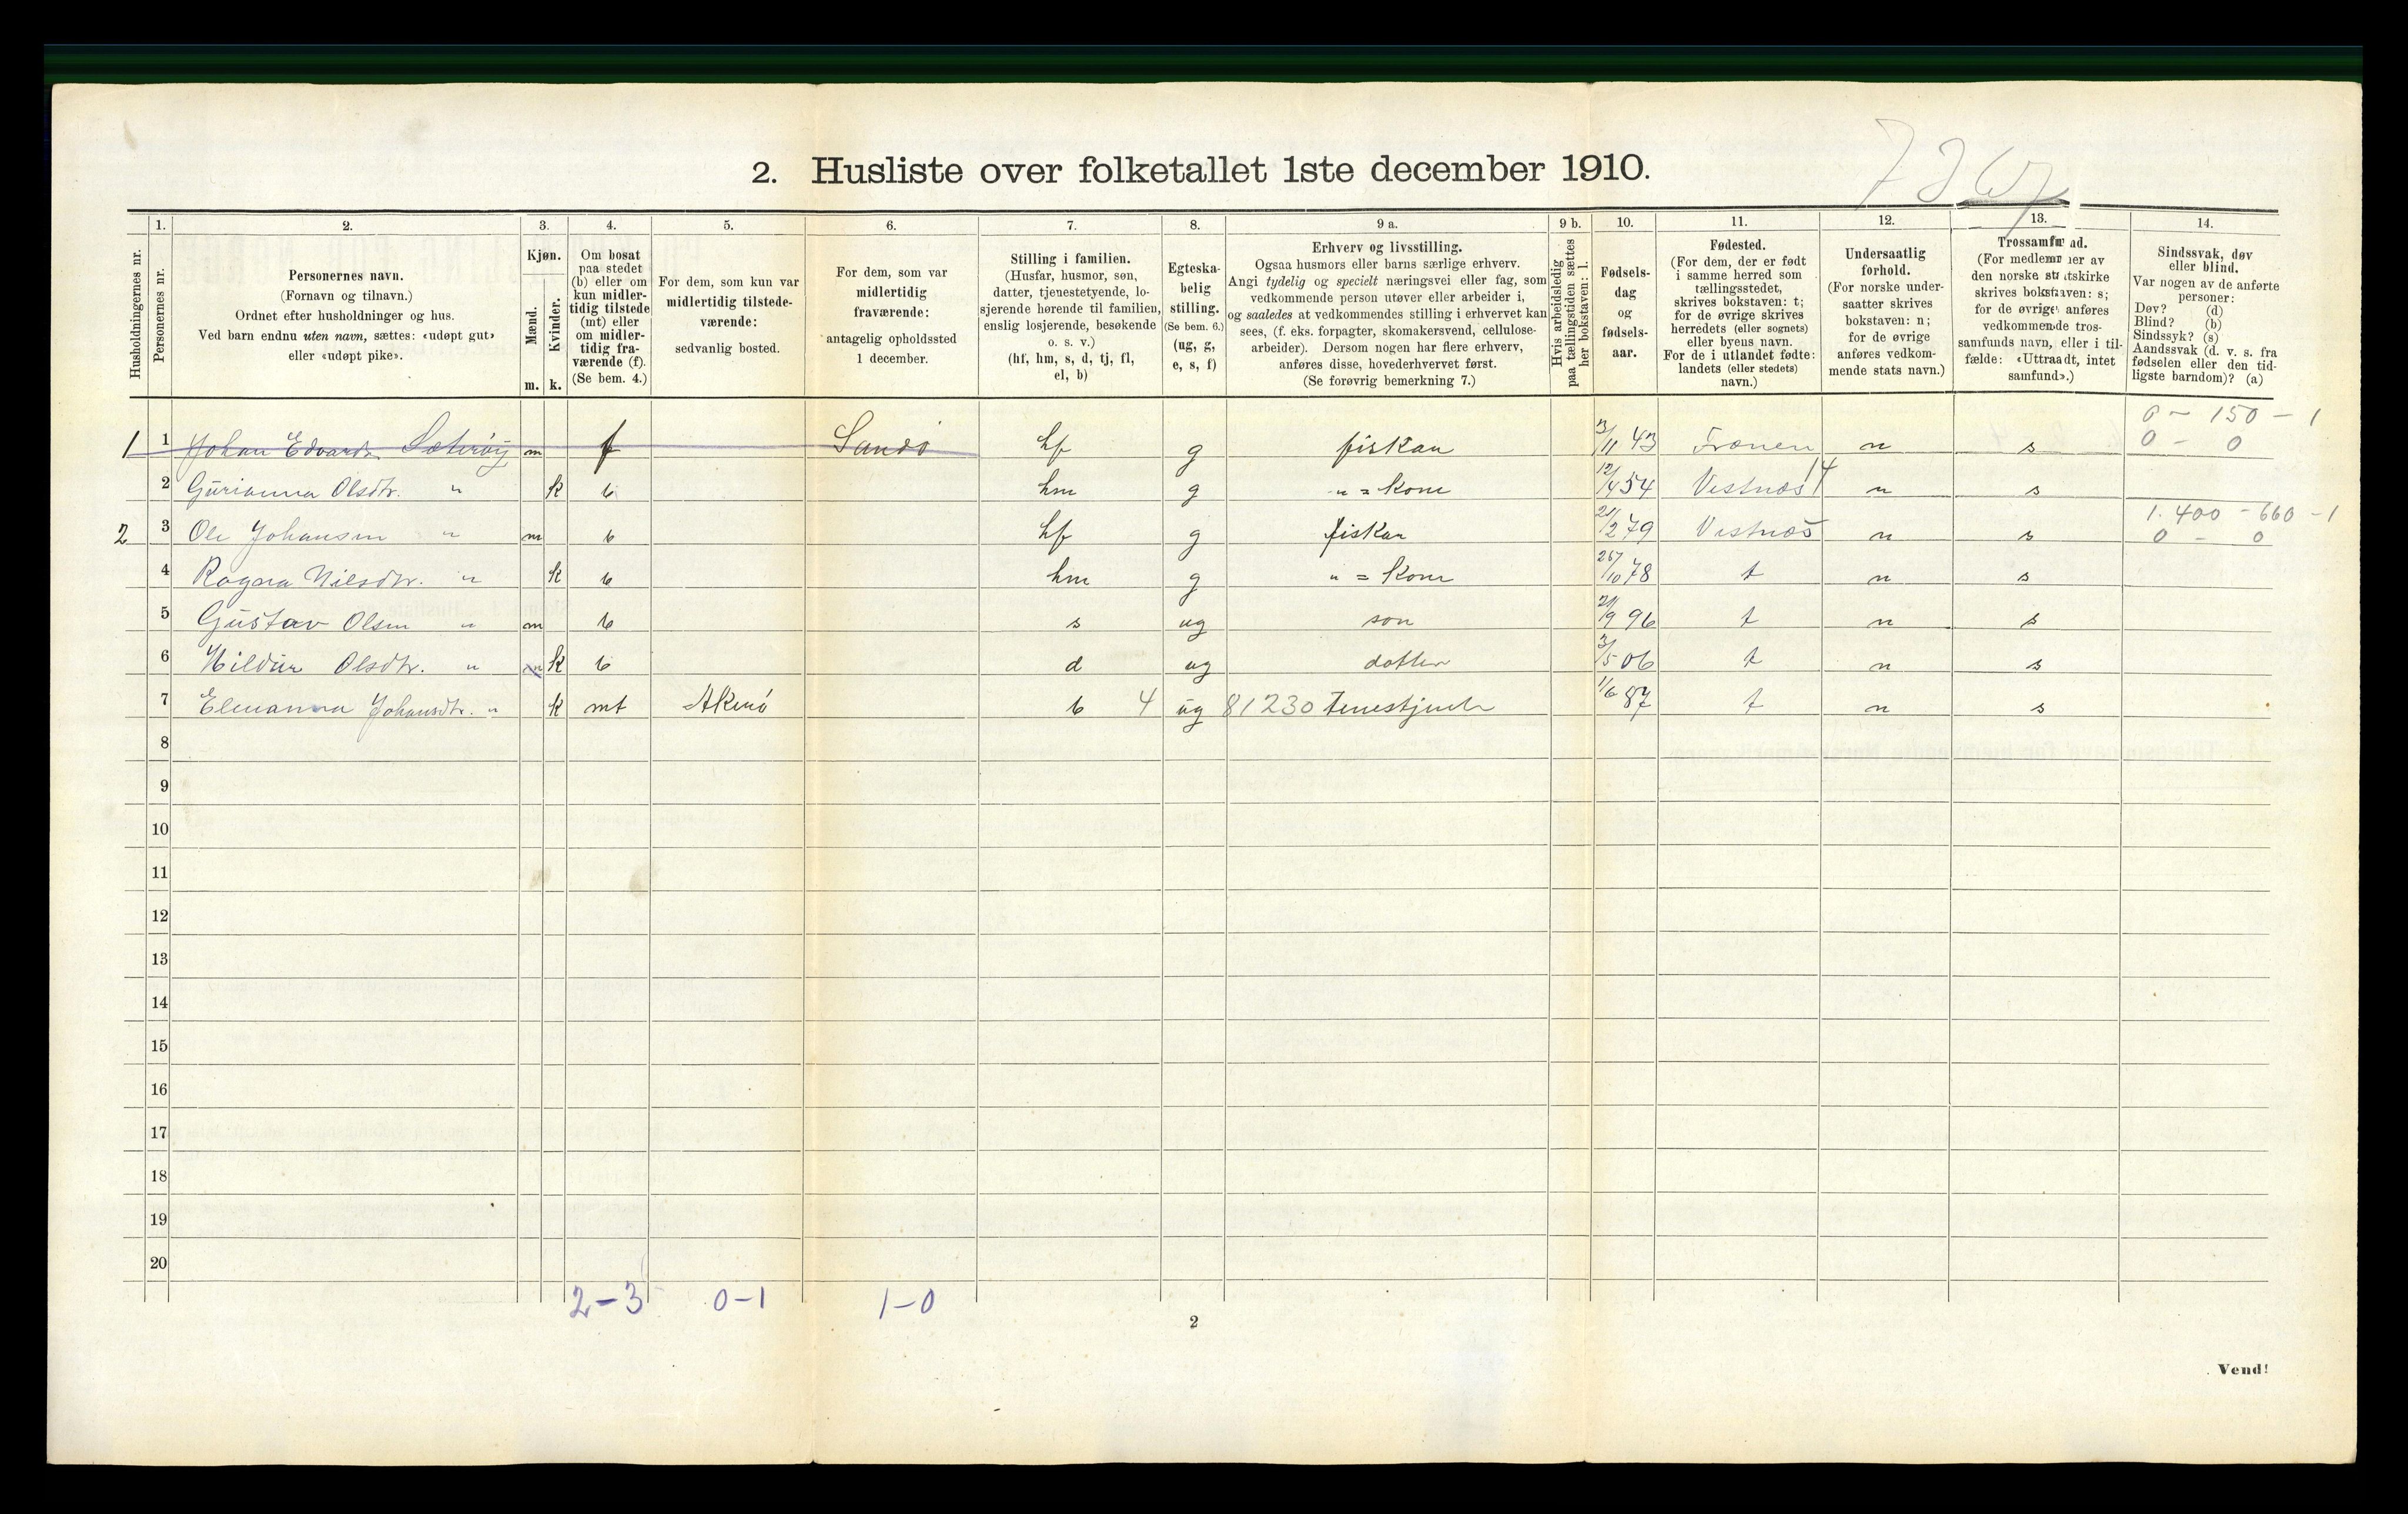 2. Husliste over folketallet 1ste december 1910.
Husholdningernes nr.
1.
Personernes nr.
2.
Personernes navn.
(Fornavn og tilnavn.)
Ordnet efter husholdninger og hus.
Ved barn endnu uten navn, sættes: «udøpt gut»
eller «udøpt pike».
3.
Kjøn.
Mænd.
Kvinder.
m. k.
4.
Om bosat
paa stedet
(b) eller om
kun midler-
tidig tilstede
(mt) eller
om midler-
tidig fra-
værende (f).
(Se bem. 4.)
5.
For dem, som kun var
midlertidig tilstede-
værende:
sedvanlig bosted.
6.
For dem, som var
midlertidig
fraværende:
antagelig opholdssted
1 december.
7.
Stilling i familien.
(Husfar, husmor, søn,
datter, tjenestetyende, lo-
sjerende hørende til familien,
enslig losjerende, besøkende
o. s. v.)
(hf, hm, s, d, tj, fl,
el, b)
8.
Egteska-
belig
stilling.
(Se bem. 6.)
(ug, g,
e, s, f)
9 a.
Erhverv og livsstilling.
Ogsaa husmors eller barns særlige erhverv.
Angi tydelig og specielt næringsvei eller fag, som
vedkommende person utøver eller arbeider i,
og saaledes at vedkommendes stilling i erhvervet kan
sees, (f. eks. forpagter, skomakersvend, cellulose-
arbeider). Dersom nogen har flere erhverv,
anføres disse, hovederhvervet først.
(Se forøvrig bemerkning 7.)
9 b.
Hvis arbeidsledig
paa tællingstiden sættes
her bokstaven: l.
10.
Fødsels-
dag
og
fødsels-
aar.
11.
Fødested.
(For dem, der er født
i samme herred som
tællingsstedet,
skrives bokstaven: t;
for de øvrige skrives
herredets (eller sognets)
eller byens navn.
For de i utlandet fødte:
landets (eller stedets)
navn.)
12.
Undersaatlig
forhold.
(For norske under-
saatter skrives
bokstaven: n;
for de øvrige
anføres vedkom-
mende stats navn.)
13.
Trossamfund.
(For medlemmer av
den norske statskirke
skrives bokstaven: s;
for de øvrige anføres
vedkommende tros-
samfunds navn, eller i til-
fælde: «Uttraadt, intet
samfund».)
14.
Sindssvak, døv
eller blind.
Var nogen av de anførte
personer:
Døv? (d)
Blind? (b)
Sindssyk? (s)
Aandssvak (d. v. s. fra
fødselen eller den tid-
ligste barndom)? (a)
0 - 150 - 1
1 1 Johan Edvards. Sæterøy m f Sandö hf g fiskar 3/11 43 Frænen n s 0 - 0
2 Gurianna Olsdtr. " k b hm g " = kone 12/4 54 Vestnæs 14 n s
1.400 - 660 - 1
2 3 Ole Johansen " m b hf g fiskar 21/2 79 Vestnæs n s 0 - 0
4 Ragna Nilsdtr. " k b hm g " = kone 26/10 78 t n s
5 Gustav Olsen " m b s ug son 21/9 96 t n s
6 Hildur Olsdtr. " k b d ug dotter 3/5 06 t n s
7 Elenanna Johansdtr. " k mt Akerö b 4 ug 81230 Tenestjente 1/6 87 t n s
8
9
10
11
12
13
14
15
16
17
18
19
20
2-3 0-1 1-0
2
Vend!